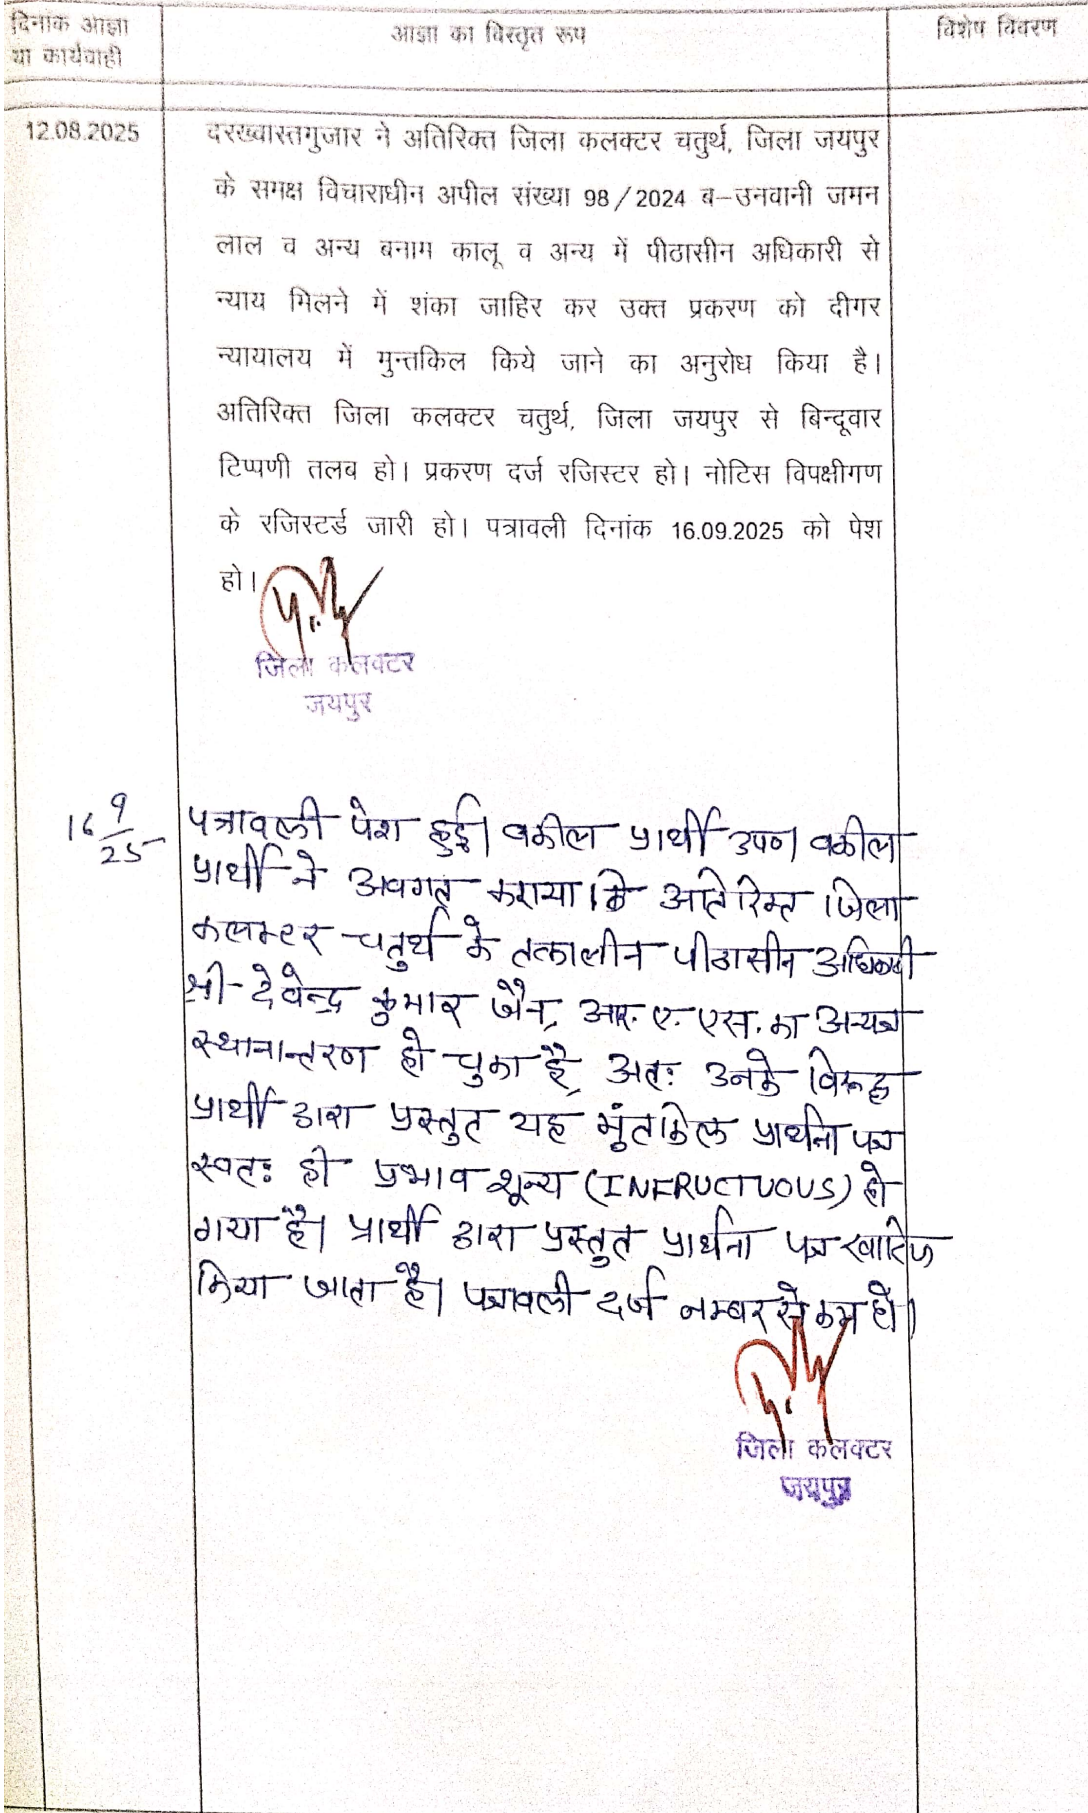 दिनांक आज्ञा
या कार्यवाही
आज्ञा का विस्तृत रूप
विशेष विवरण
12.08.2025
दरख्वास्तगुजार ने अतिरिक्त जिला कलक्टर चतुर्थ, जिला जयपुर
के समक्ष विचाराधीन अपील संख्या 98/2024 ब-उनवानी जमन
लाल व अन्य बनाम कालू व अन्य में पीठासीन अधिकारी से
न्याय मिलने में शंका जाहिर कर उक्त प्रकरण को दीगर
न्यायालय में मुन्तकिल किये जाने का अनुरोध किया है।
अतिरिक्त जिला कलक्टर चतुर्थ, जिला जयपुर से बिन्दूवार
टिप्पणी तलब हो। प्रकरण दर्ज रजिस्टर हो। नोटिस विपक्षीगण
के रजिस्टर्ड जारी हो। पत्रावली दिनांक 16.09.2025 को पेश
हो।
जिला कलक्टर
जयपुर
16 9/25
पत्रावली पेश हुई। वकील प्रार्थी उप०। वकील
प्रार्थी ने अवगत कराया कि अतिरिक्त जिला
कलक्टर चतुर्थ के तत्कालीन पीठासीन अधिकारी
श्री देवेन्द्र कुमार जैन, आर.ए.एस. का अन्यत्र
स्थानान्तरण हो चुका है, अतः उनके विरूद्ध
प्रार्थी द्वारा प्रस्तुत यह मुंतकिल प्रार्थना पत्र
स्वतः ही प्रभाव शून्य (INFRUCTUOUS) हो
गया है। प्रार्थी द्वारा प्रस्तुत प्रार्थना पत्र खारिज
किया जाता है। पत्रावली दर्ज नम्बर से कम हो।
जिला कलक्टर
जयपुर